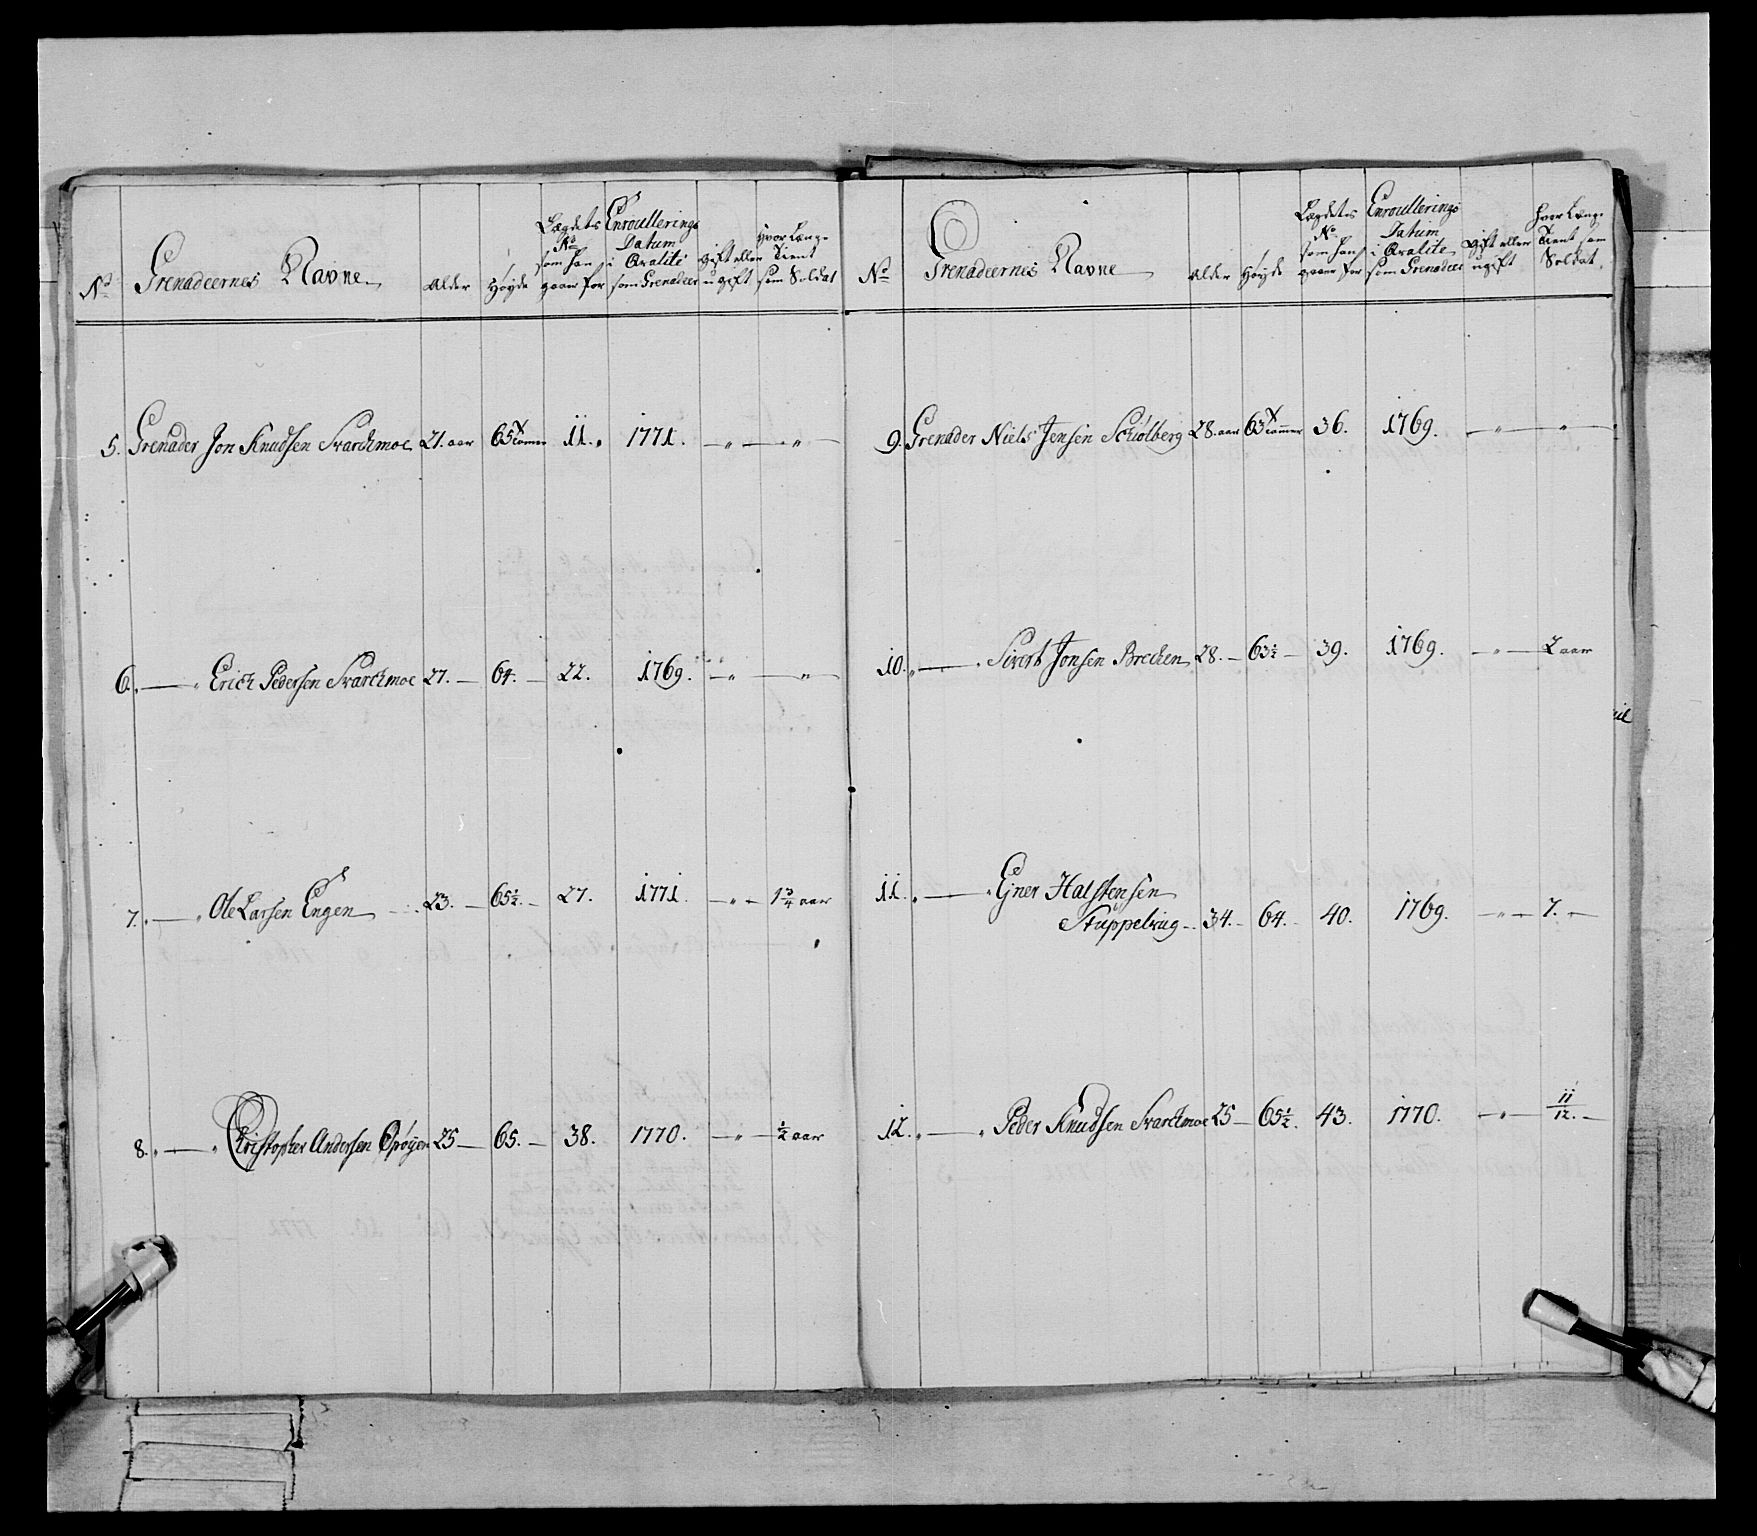 No Grenadeernes Navne Alder Høyde Lægdets No som han gaaer for Enroullerings Datum i Qvalité som Grenadeer gift eller ugift Hvor Længe Tient som Soldat
5. Grenader Jon Knudsen Svarckmoe 21. aar 65 Tommer 11. 1771. — " — "
6. — " Erich Pedersen Svarckmoe 27. — 64. — 22. 1769. — " — "
7. — " Ole Larsen Engen 23. — 65½. — 27. 1771. — " — 1¾ aar
8. — " Christopher Andersen 25 — 65. — 38. 1770. — " — ½ aar
No Grenadeernes Navne Alder Høyde Lægdets No som han gaaer for Enroullerings Datum i Qvalite som Grenadeer gift eller ugift hvor Længe Tient som Soldat.
9. Grenader Niels Jensen Schiølberg 28. aar 63 Tommer 36. 1769. — " — "
10. — " Sivert Jonsen Brechen 28. — 63½ — 39. 1769. — " — 2 aar
11. — " Ejner Halstensen
Stuppelvug 34. — 64. — 40. 1769. — " — 7. —
12. — " Peder Knudsen Svarckmoe 25 — 65½. 43. 1770. — " — 11/12. —